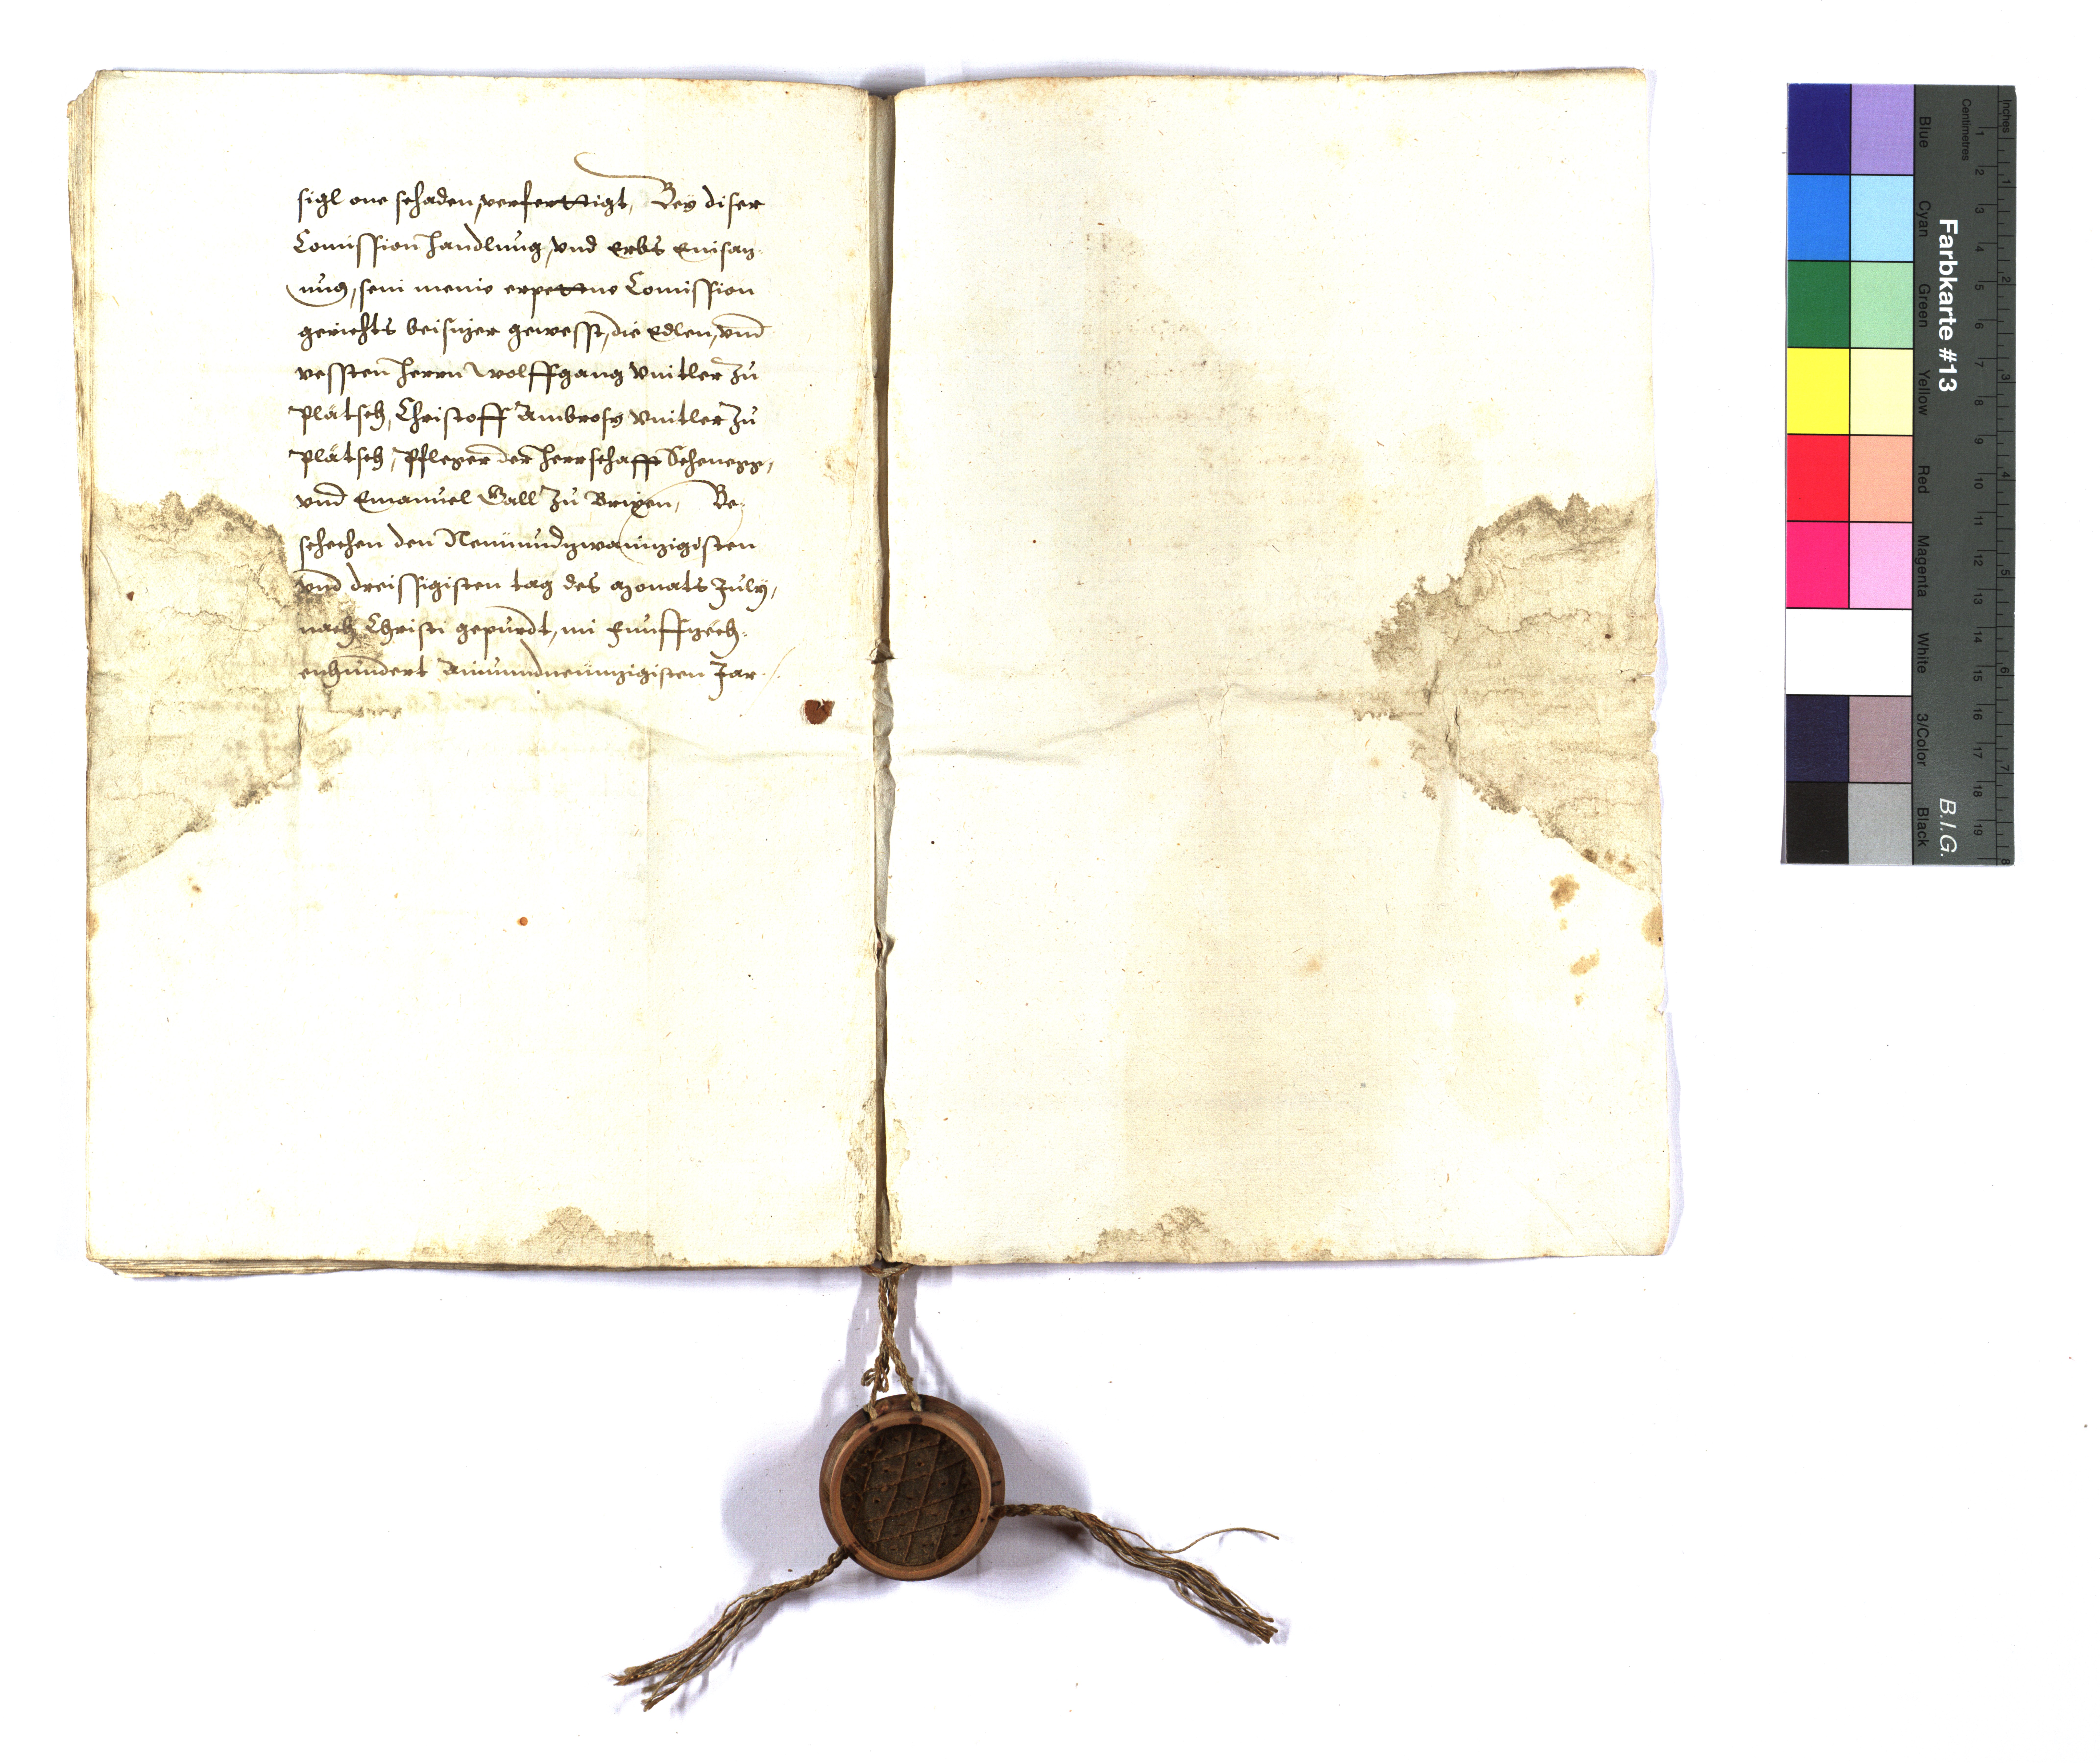 sigl one schaden, verferttigt, Bey diser
Comission handlung, vnd Erbs Einsaz¬
ung, sein meine erpettne Comission
gerichts beisizer gewesst, die Edlen, vnd
vessten herrn Wolffgang Vintler zu
Plätsch, Christoff Ambrosy Vintler zu
Plätsch, Pfleger der herrschafft Schenegg,
vnd Emanuel Gall zu Brixen, Be¬
schechen den Neunundzwainzigisten
vnd dreissigisten tag des monats July,
nach Christi gepurdt, im Funffzech¬
enhundert Ainundneunzigisten Jar.
Farbkarte #13
B.I.G.
Inches
Centimetres
1 2 3 4 5 6 7 8 9 10 11 12 13 14 15 16 17 18 19
1 2 3 4 5 6 7 8
Blue
Cyan
Green
Yellow
Red
Magenta
White
3/Color
Black